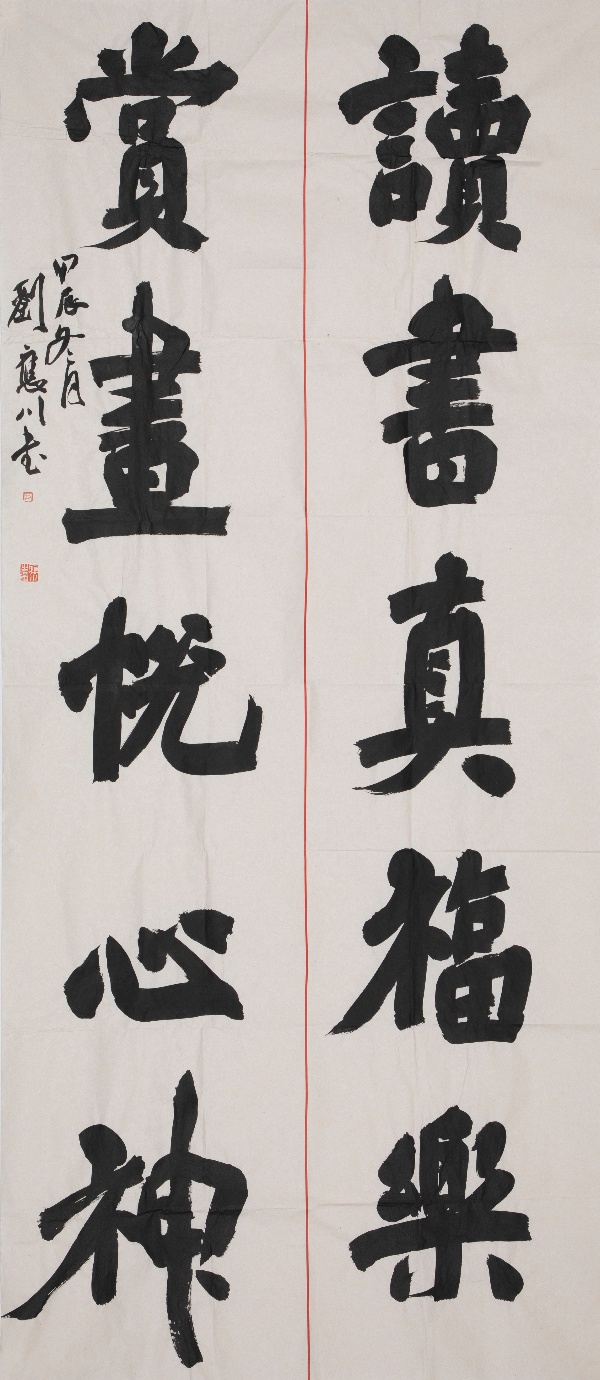 讀書真福樂
賞畫悦心神
甲辰冬月
劉應川書